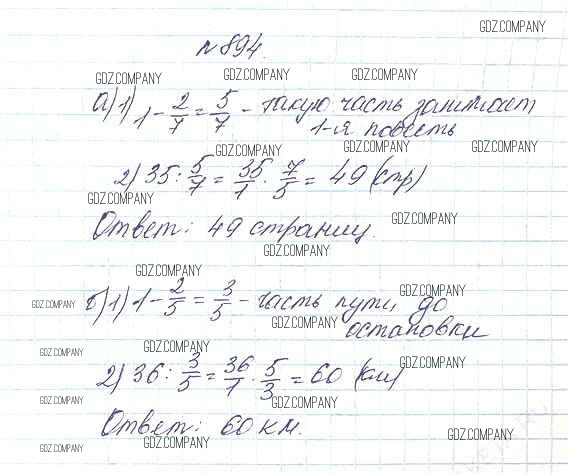 GDZ.COMPANY
№ 894.
GDZ.COMPANY GDZ.COMPANY GDZ.COMPANY
а) 1) 1 - 2/7 = 5/7 - такую часть занимает
1-я повесть
GDZ.COMPANY GDZ.COMPANY GDZ.COMPANY
2) 35 : 5/7 = 35/1 · 7/5 = 49 (стр)
GDZ.COMPANY GDZ.COMPANY
Ответ: 49 страниц.
GDZ.COMPANY
GDZ.COMPANY
б) 1) 1 - 2/5 = 3/5 - часть пути до
GDZ.COMPANY GDZ.COMPANY
GDZ.COMPANY остановки
GDZ.COMPANY GDZ.COMPANY GDZ.COMPANY
2) 36 : 3/5 = 36/1 · 5/3 = 60 (км)
GDZ.COMPANY GDZ.COMPANY
Ответ: 60 км.
GDZ.COMPANY GDZ.COMPANY GDZ.COMPANY